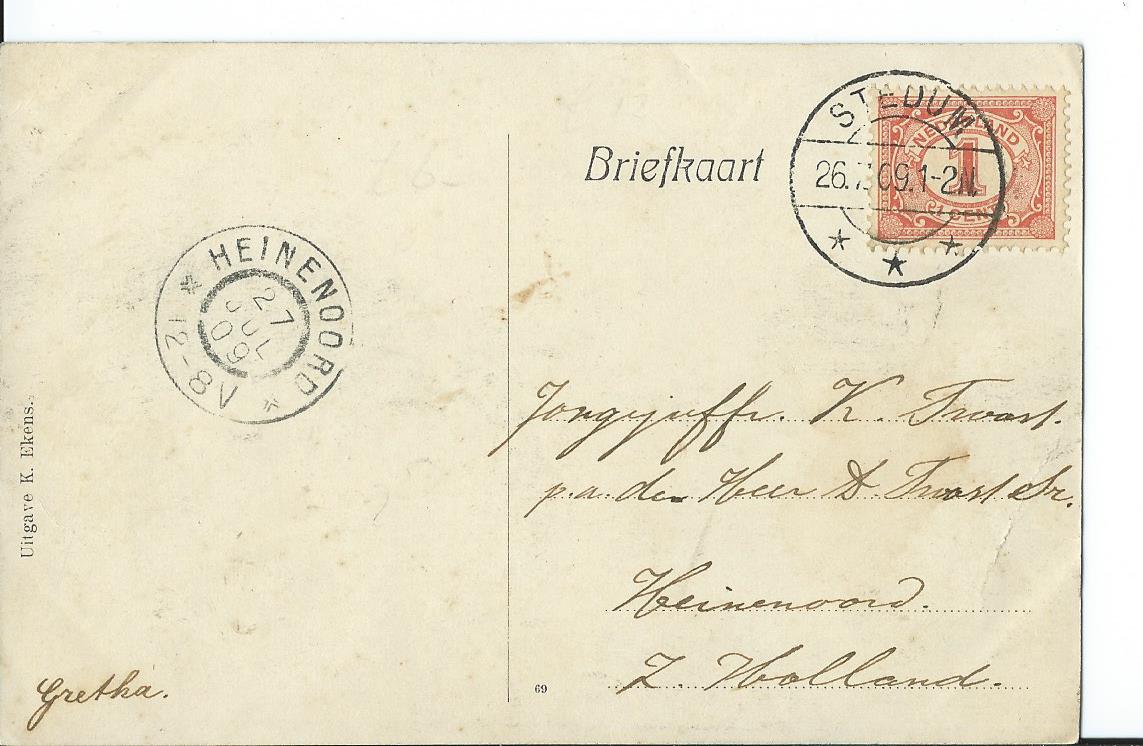 Briefkaart
STEDUM
26.7.09.1-2N.
NEDERLAND
1
CENT
HEINENOORD
27
JUL
09
12-8V
Uitgave K. Ekens.
Jongejuffr. K. Troost.
p.a. den Heer A. Troost Sr.
Heinenoord.
Z. Holland.
Gretha.
69